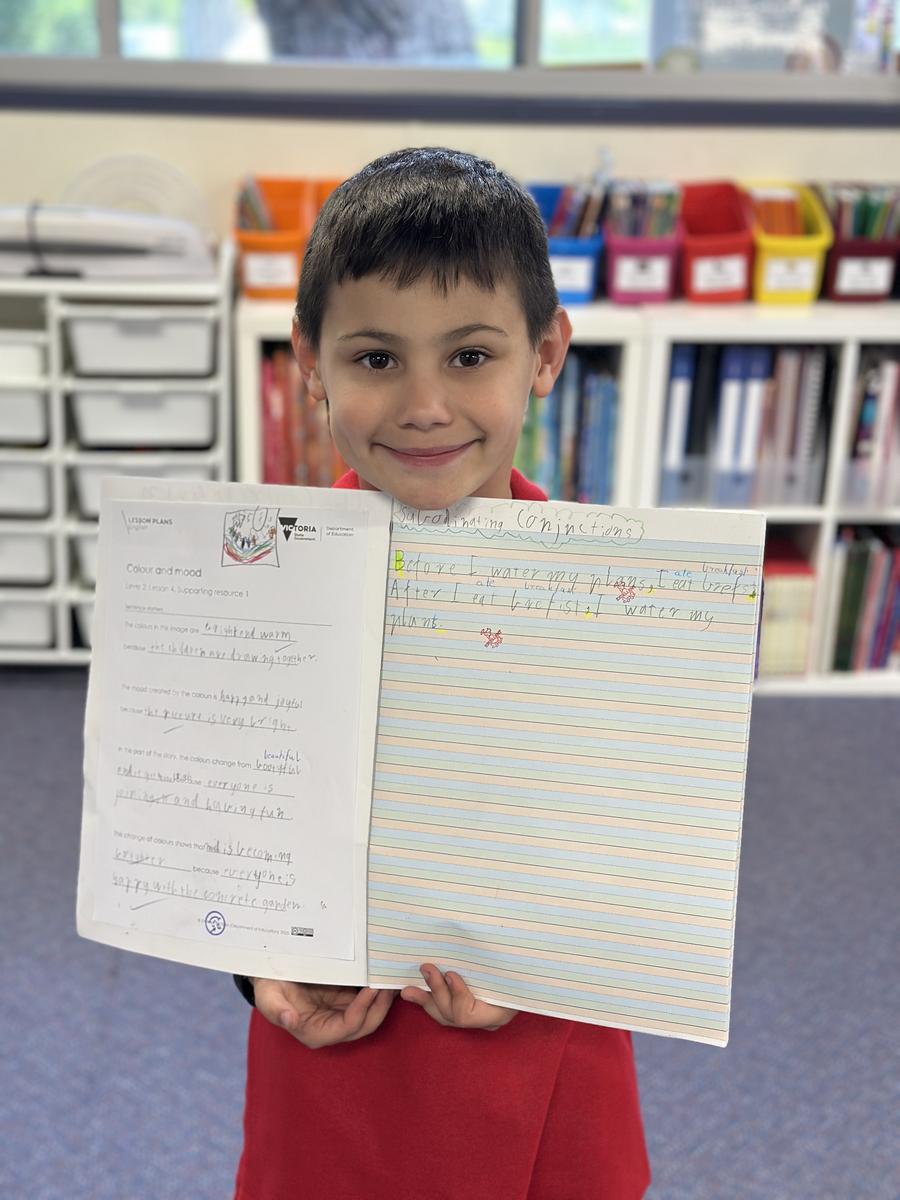 LESSON PLANS
English
VICTORIA
State
Government
Department
of Education
Colour and mood
Level 2: Lesson 4, Supporting resource 1
Sentence starters
The colours in this image are bright and warm
because the children are drawing together.
The mood created by the colours is happy and joyful
because the picture is very bright
In this part of the story, the colours change from
beautiful
because everyone is
and having fun
The change of colours shows that is becoming
because everyone is
happy with the concrete garden.
Subordinating Conjunctions
ate breakfast
Before I water my plans, I eat brefist.
ate breakfast
After I eat brefist, I water my
plant.